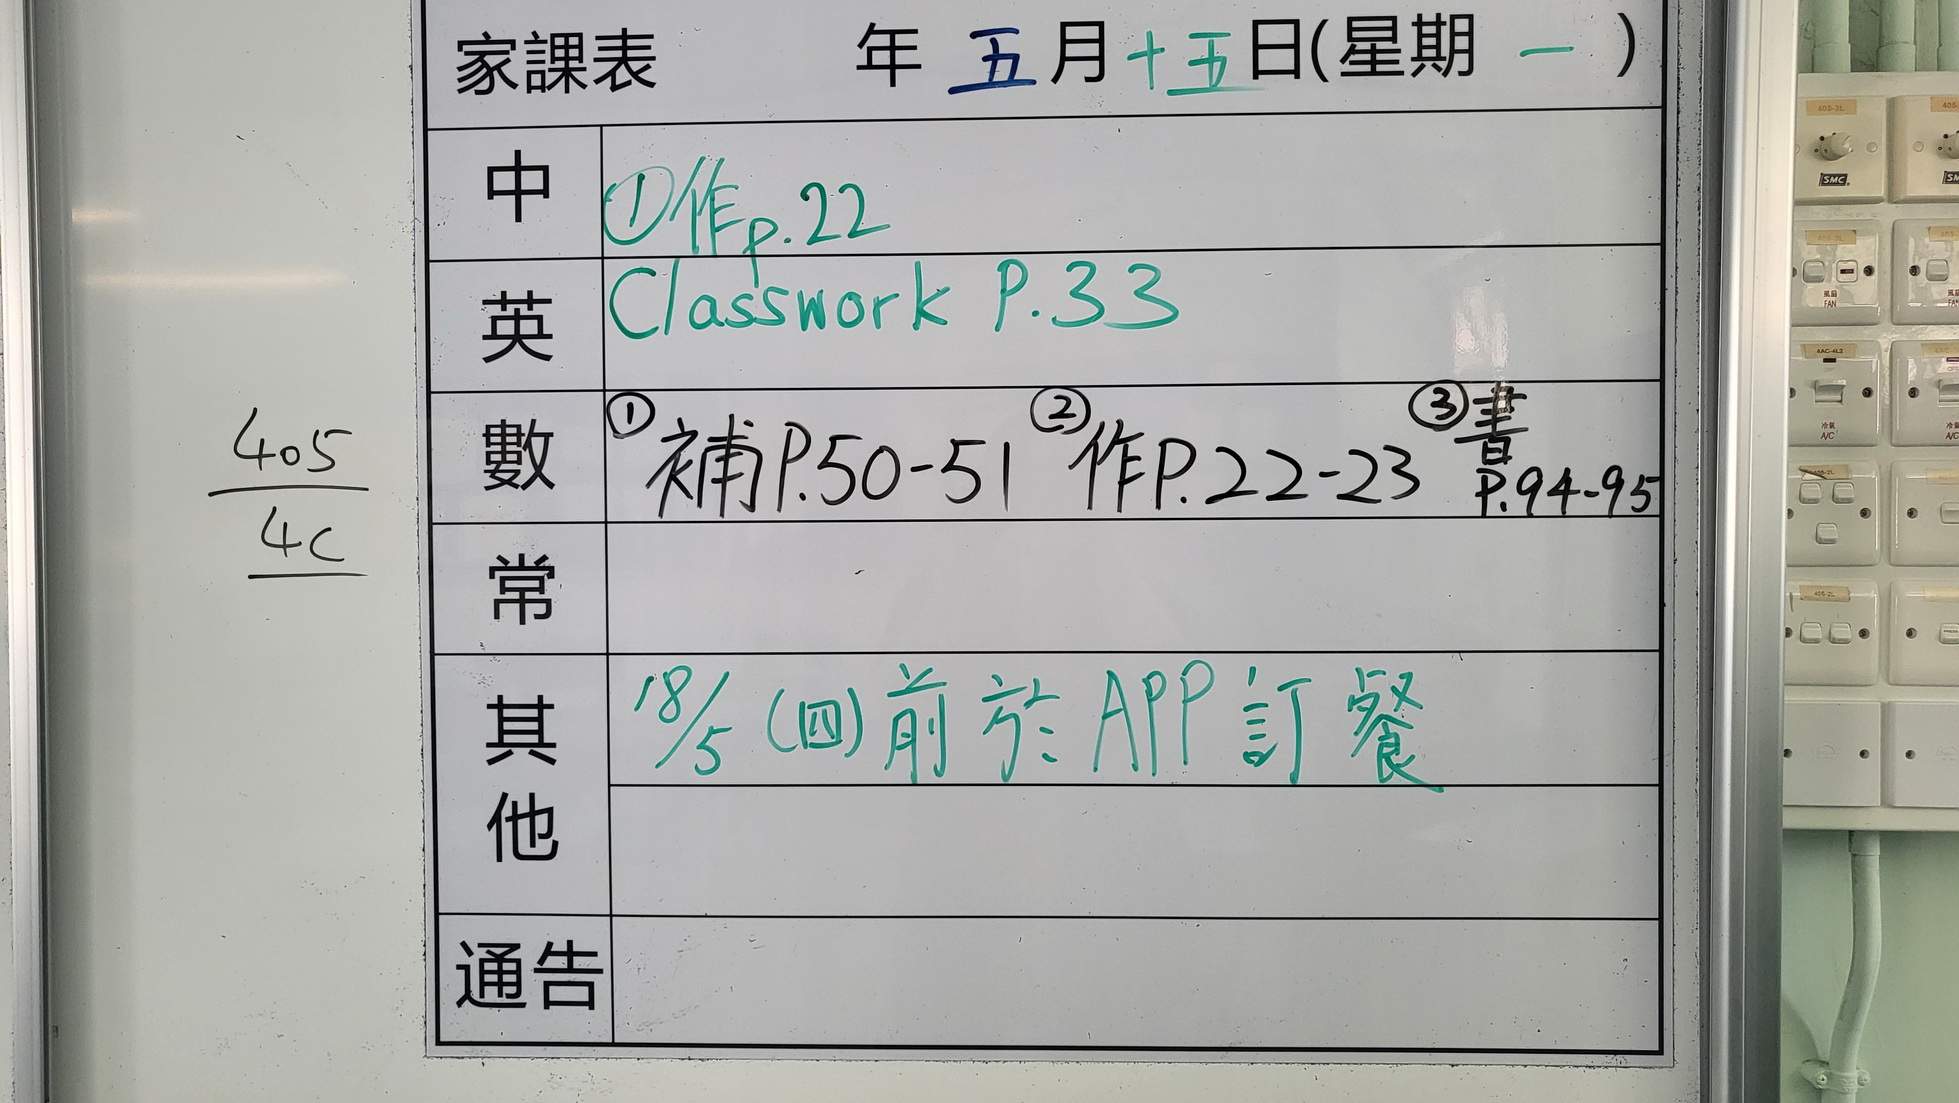 家課表 年 五 月 十五 日(星期 一 )
中 ①作p.22
英 Classwork P.33
數 ①補P.50-51 ②作P.22-23 ③書
P.94-95
405
4C
常
其他 18/5 (四)前於APP訂餐
通告
405-3L
SMC
405-3L
風扇
FAN
4AC-4L2
冷氣
A/C
405-2L